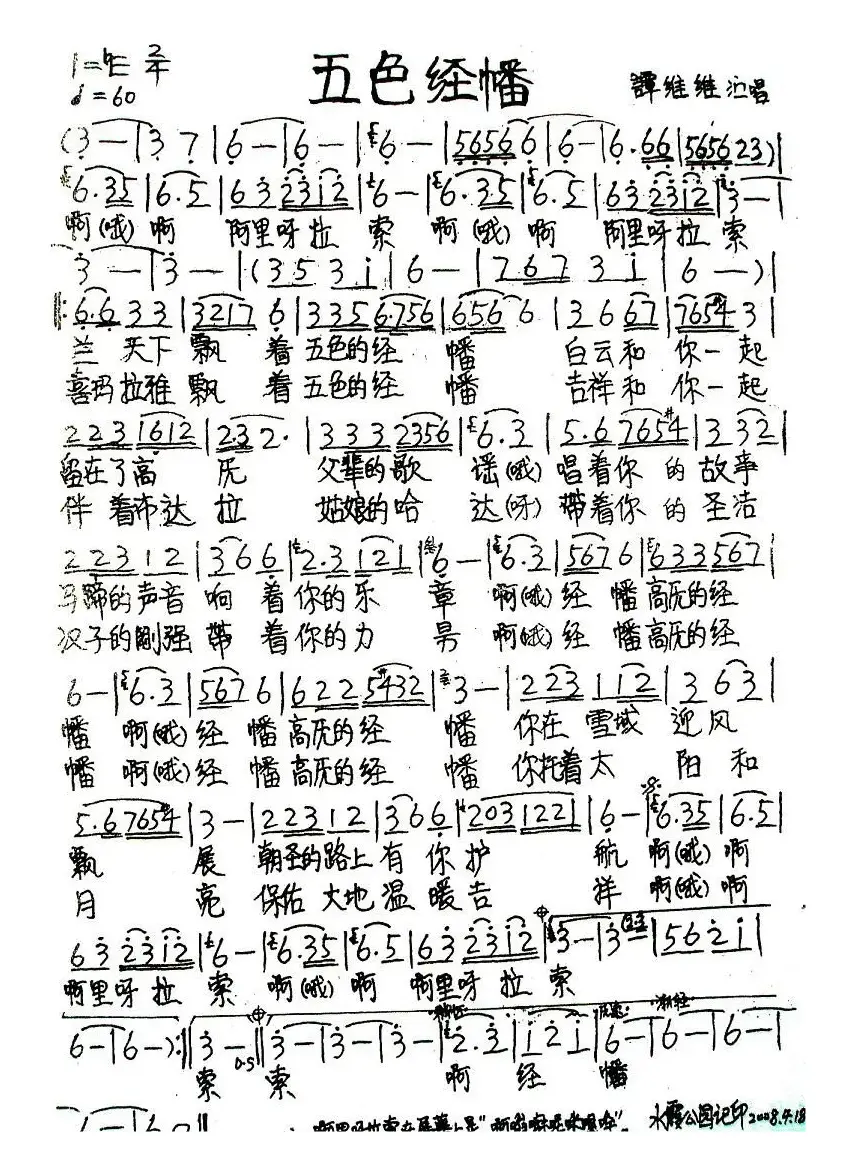 1=♭E 2/4
五色经幡
♩=60
譚维维 演唱
(3 — | 3 7 | 6 — | 6 — | 6 — | 5656 6 | 6 — | 6·66 | 5656 23)
6·35 | 6·5 | 63 2312 | 6 — | 6·35 | 6·5 | 63 2312 | 3 — |
啊(哦) 啊 阿里呀拉 索 啊(哦) 啊 阿里呀拉 索
3 — | 3 — | (35 3 i | 6 — | 767 3 i | 6 —) |
‖: 6·6 33 | 3217 6 | 335 6·756 | 656 6 | 36 67 | 7654 3 |
兰天下 飘 着 五色的经 幡 白云和 你一起
喜玛拉雅 飘 着 五色的经 幡 吉祥和 你一起
223 1612 | 2·3 2· | 333 2356 | 6·3 | 5·6 7654 | 3 32 |
留在了高 厡 父辈的歌 谣(哦) 唱着你 的 故事
伴着布达 拉 姑娘的哈 达(呀) 带着你 的 圣洁
223 12 | 366 | 2·3 121 | 6 — | 6·3 | 567 6 | 633 567 |
马蹄的声音 响 着你的乐 章 啊(哦)经 幡高厡的经
汉子的刚强 带 着你的力 啊(哦)经 幡高厡的经
6 — | 6·3 | 567 6 | 622 5432 | 3 — | 223 112 | 3 63 |
幡 啊(哦)经 幡高厡的经 幡 你在 雪域 迎风
幡 啊(哦)经 幡高厡的经 幡 你托着太 阳和
5·6 7654 | 3 — | 223 12 | 366 | 203 122 | 6 — | 6·35 | 6·5 |
飘 展 朝圣的路上 有 你 护 航 啊(哦) 啊
月 亮 保佑 大地 温 暖 吉 祥 啊(哦) 啊
63 2312 | 6 — | 6·35 | 6·5 | 63 2312 | 3 — | 3 | 56 2 i |
啊里呀 拉 索 啊(哦) 啊 啊里呀拉 索
6 — | 6 — ) :‖ 3 — ‖ 3 — | 3 — | 3 — | 2·3 | i 2 i | 6 — | 6 — | 6 — |
D.S
索 索 啊 经 幡
水霞公园记印 2008.4.18